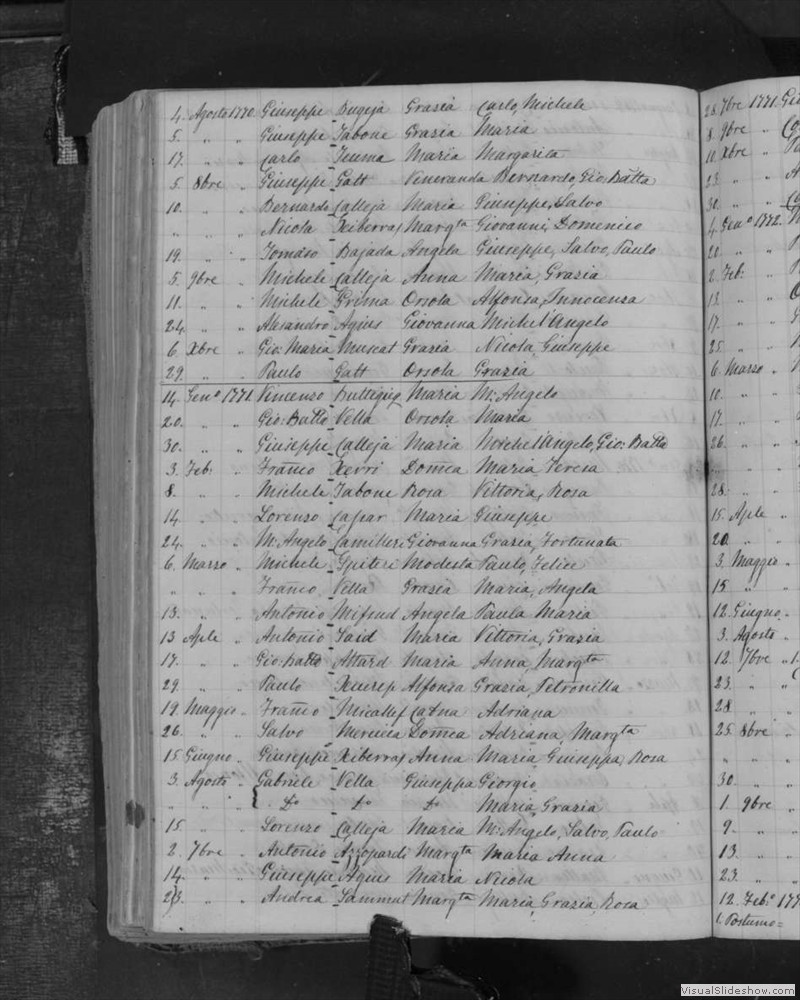 4. Agosto 1770. Giuseppe Bugeja Grazia Carlo, Michele
5. " " Giuseppe Tabone Grazia Maria
17. " " Carlo Teuma Maria Margarita
5. 8bre " Giuseppe Gatt Veneranda Bernardo, Gio: Batta
10. " " Bernardo Calleja Maria Giuseppe, Salvo
" " " Nicola Xiberras Margta Giovanni, Domenico
19. " " Tomaso Bajada Angela Giuseppe, Salvo, Paulo
5. 9bre " Michele Calleja Anna Maria, Grazia
11. " " Michele Grima Orsola Alfonsa, Innocenza
24. " " Alesandro Agius Giovanna Michel'Angelo
6. Xbre " Gio: Maria Muscat Grazia Nicola, Giuseppe
29. " " Paulo Gatt Orsola Grazia
14. Geno 1771. Vincenzo Buttigieg Maria M: Angelo
20. " " Gio: Batta Vella Orsola Maria
30. " " Giuseppe Calleja Maria Michel'Angelo, Gio: Batta
3. Feb: " Franco Xerri Domca Maria Teresa
8. " " Michele Tabone Rosa Vittoria, Rosa
14. " " Lorenzo Caspar Maria Giuseppe
24. " " M: Angelo Camilleri Giovanna Grazia, Fortunata
6. Marzo " Michele Spiteri Modesta Paulo, Felice
" " " Franco Vella Grazia Maria, Angela
13. " " Antonio Mifsud Angela Paula Maria
13 Aple " Antonio Said Maria Vittoria, Grazia
17. " " Gio: Batta Attard Maria Anna, Margta
29. " " Paulo Xuereb Alfonsa Grazia, Petronilla
19. Maggio " Franco Micallef Catna Adriana
26. " " Salvo Mercieca Domca Adriana, Margta
15. Giugno " Giuseppe Xiberras Anna Maria Giuseppa, Rosa
3. Agosto " Gabriele Vella Giuseppa Giorgio
" " " { Do Do Do Maria, Grazia
15. " " Lorenzo Calleja Maria M: Angelo, Salvo, Paulo
2. 7bre " Antonio Azzopardi Margta Maria Anna
14. " " Giuseppe Agius Maria Nicola
23. " " Andrea Sammut Margta Maria, Grazia, Rosa
28. 7bre 1771.
8. 9bre "
10. Xbre "
23. " "
30. " "
4. Geno 1772.
20. " "
2. Feb: "
13. " "
17. " "
25. " "
6. Marzo "
10. " "
17. " "
26. " "
" "
28. " "
15. Aple "
20. " "
3. Maggio "
15 "
12. Giugno "
3. Agosto "
12. 7bre "
23. " "
28 " "
25. 8bre "
" " "
30. " "
1. 9bre "
9. " "
13. " "
23. " "
12. Febo 177
1. Postumo =
VisualSlideshow.com